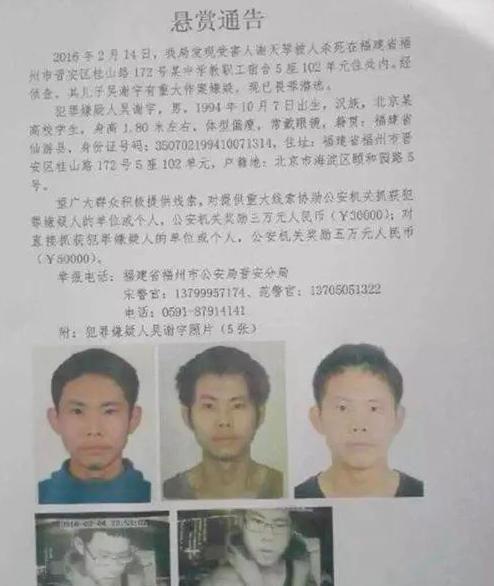 悬赏通告
2016年2月14日,我局发现受害人谢天琴被人杀死在福建省福
州市晋安区桂山路172号某中学教职工宿舍5座102单元住处内。经
侦查,其儿子吴谢宇有重大作案嫌疑,现已畏罪潜逃。
犯罪嫌疑人吴谢宇,男,1994年10月7日出生,汉族,北京某
高校学生,身高1.80米左右,体型偏瘦,常戴眼镜,籍贯:福建省
仙游县,身份证号码:350702199410071314,住址:福建省福州市晋
安区桂山路172号5座102单元,户籍地:北京市海淀区颐和园路5
号。
望广大群众积极提供线索,对提供重大线索协助公安机关抓获犯
罪嫌疑人的单位或个人,公安机关奖励三万元人民币(¥30000);对
直接抓获犯罪嫌疑人的单位或个人,公安机关奖励五万元人民币
(¥50000)。
举报电话:福建省福州市公安局晋安分局
宋警官:13799957174、范警官:13705051322
电话:0591-87914141
附:犯罪嫌疑人吴谢宇照片(5张)